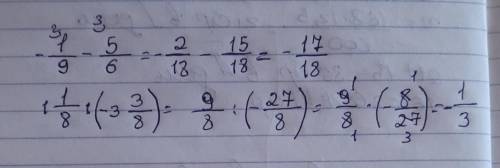 -1/9 ³ - 5/6 ³ = -2/18 - 15/18 = -17/18
1 1/8 : (-3 3/8) = 9/8 : (-27/8) = 9/8 · (-8/27) = -1/3